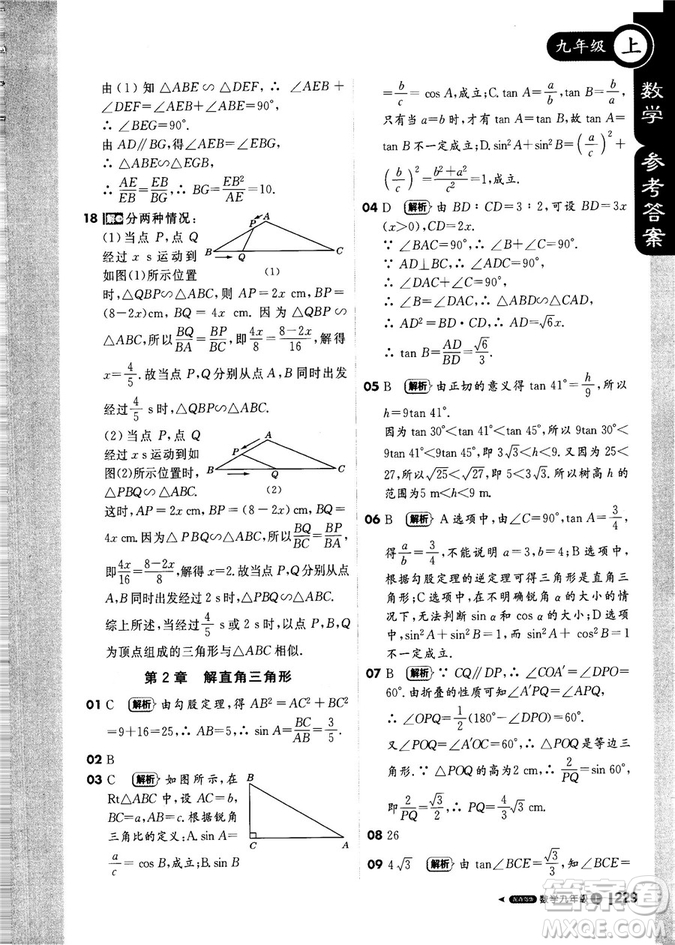 九年级 上
数学 参考答案
由(1)知△ABE∽△DEF,∴∠AEB+
∠DEF=∠AEB+∠ABE=90°,
∴∠BEG=90°.
由AD∥BG,∴∠AEB=∠EBG,
∴△ABE∽△EGB,
∴AE/EB=EB/BG,∴BG=EB²/AE=10.
18 分两种情况:
(1)当点P,点Q
经过x s运动到
如图(1)所示位置
时,△QBP∽△ABC,则AP=2x cm,BP=
(8-2x)cm,BQ=4x cm.因为△QBP∽
△ABC,所以BQ/BA=BP/BC,即4x/8=(8-2x)/16,解得
x=4/5.故当点P,Q分别从点A,B同时出发
经过4/5 s时,△QBP∽△ABC.
A P B Q C (1)
(2)当点P,点Q
经过x s运动到如
图(2)所示位置时,
△PBQ∽△ABC,
则AP=2x cm,BP=(8-2x)cm,BQ=
4x cm.因为△PBQ∽△ABC,所以BQ/BC=BP/BA,
即4x/16=(8-2x)/8,解得x=2.故当点P,Q分别从
点A,B同时出发经过2 s时,△PBQ∽△ABC.
综上所述,点P,Q同时出发4/5 s或2 s后,以P,B,Q
为顶点组成的三角形与△ABC相似.
A P B Q C (2)
第2章 解直角三角形
01 C 解析 由勾股定理,得AB²=AC²+BC²
=9+16=25,∴AB=5.∴sin A=BC/AB=3/5.
02 B
03 C 解析 如图所示,在
Rt△ABC中,根据锐角
三角比的定义:A.sin A=
a/c=cos B,成立;B.sin B
B C A
=b/c=cos A,成立;C.tan A=a/b,tan B=b/a,
只有当a=b时,tan A=tan B,故tan A=
tan B不一定成立;D.sin²A+sin²B=(a/c)²+
(b/c)²=(b²+a²)/c²=1,成立.
04 D 解析 由BD∶CD=3∶2,可设BD=3x
(x>0),CD=2x.
∵∠BAC=90°,∴∠B+∠C=90°.
∵AD⊥BC,∴∠DAC+∠C=90°,
∴∠B=∠DAC,∴△ABD∽△CAD,
∴AD²=BD·CD,∴AD=√6x.
∴tan B=AD/BD=√6/3.
05 B 解析 由正切的意义得tan 41°=h/9,所以
h=9tan 41°.
因为tan 30°<tan 41°<tan 45°,所以9tan 30°<
9tan 41°<9tan 45°,即3√3<h<9.又因为25<
27,所以√25<√27,即5<3√3.所以树高h的
的范围为5 m<h<9 m.
06 B 解析 A选项中,由∠C=90°,tan A=3/4,
得a/b=3/4不一定a=3,b=4;B选项中,
根据勾股定理的逆定理可得三角形是直角三
角形;C选项中,在不明确锐角α和β的大小的情
况下,无法判断sin α和cos α的大小;D选项中,
sin α=1/2,则锐角α=30°.
07 B 解析 ∵CQ∥DP,∴∠COA′=∠DPA′=
60°.由折叠,得∠A′PQ=∠APQ,
∴∠OPQ=1/2(180°-∠DPO)=60°.
又∠POQ=∠COA′=60°,∴△POQ是等边三
角形.∵∠POQ的高为2 cm,∴2/PQ=sin 60°,
即2/PQ=√3/2,∴PQ=4√3/3 cm.
08 26
09 4√3 解析 由tan∠BCE=√3/3,知∠BCE=
数学九年级 上 229